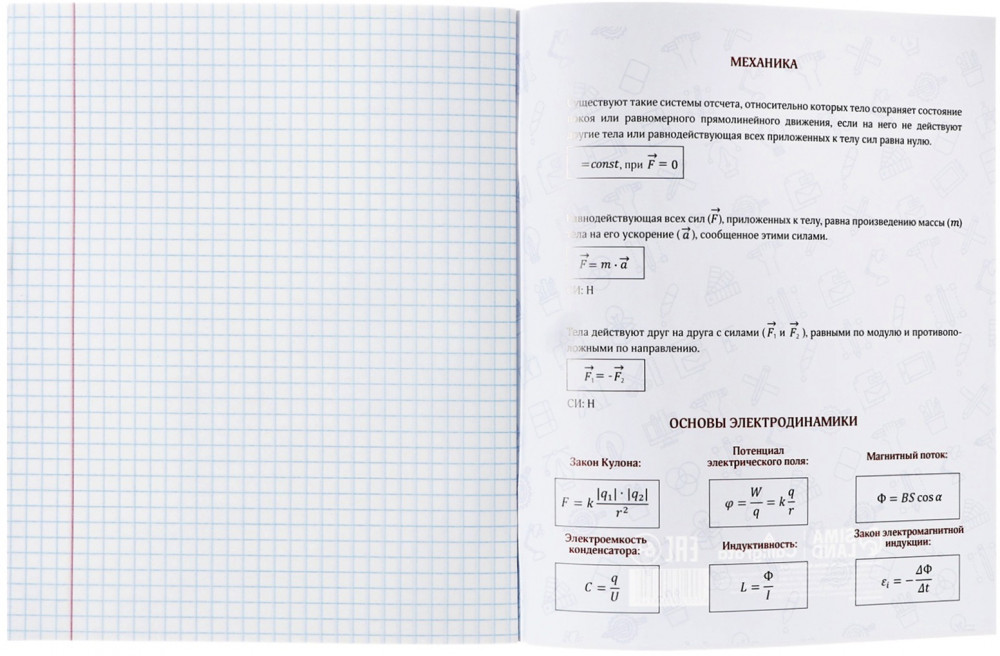 МЕХАНИКА
существуют такие системы отсчета, относительно которых тело сохраняет состояние
покоя или равномерного прямолинейного движения, если на него не действуют
другие тела или равнодействующая всех приложенных к телу сил равна нулю.
= const, при F⃗ = 0
равнодействующая всех сил (F⃗), приложенных к телу, равна произведению массы (m)
тела на его ускорение (a⃗), сообщенное этими силами.
F⃗ = m · a⃗
СИ: Н
Тела действуют друг на друга с силами (F⃗₁ и F⃗₂), равными по модулю и противопо-
ложными по направлению.
F⃗₁ = -F⃗₂
СИ: Н
ОСНОВЫ ЭЛЕКТРОДИНАМИКИ
Закон Кулона:
F = k |q₁| · |q₂| / r²
Потенциал
электрического поля:
φ = W/q = k q/r
Магнитный поток:
Ф = BS cos α
Электроемкость
конденсатора:
C = q/U
Индуктивность:
L = Ф/I
Закон электромагнитной
индукции:
εᵢ = − ΔФ/Δt
SIMA
LAND